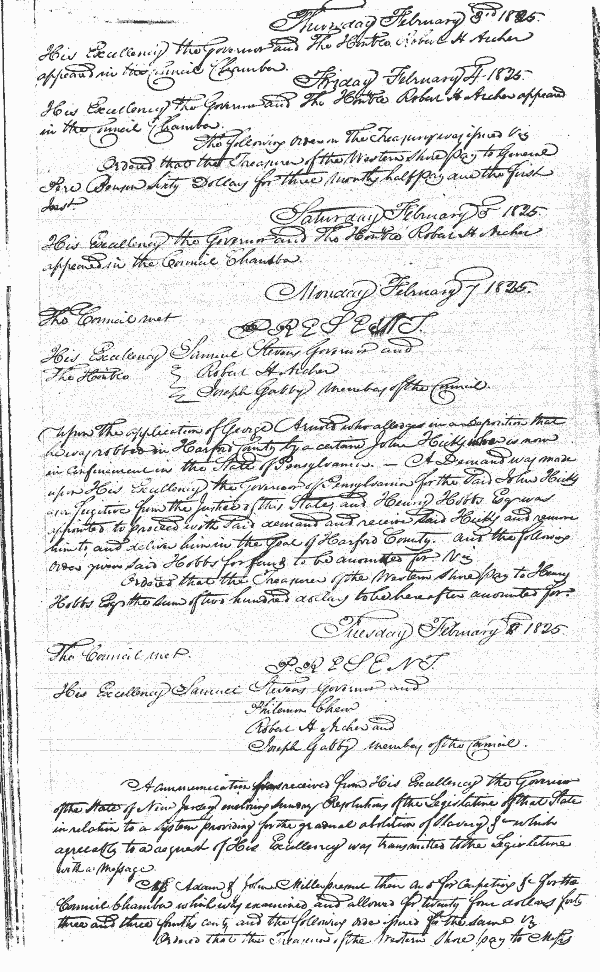 Thursday February 3rd 1825.
His Excellency the Governor and The Honble Robert H Archer
appeared in the Council Chamber.
Friday February 4. 1825.
His Excellency the Governor and The Honble Robert H Archer appeared
in the Council Chamber.
The following order on the Treasury was issued Viz
Ordered that the Treasurer of the Western Shore pay to General
Pere Benson Sixty Dollars for three months half pay due the first
Inst.
Saturday February 5 1825.
His Excellency the Governor and The Honble Robert H Archer
appeared in the Council Chamber.
Monday February 7 1825.
The Council met
PRESENT.
His Excellency Samuel Stevens Governor and
The Honble Robert H Archer
Joseph Gabby members of the Council.
Upon the application of George Arnold who alledges in a deposition that
he was robbed in Harford County by a certain John Hicks who is now
in confinement in the State of Pensylvania. — A Demand was made
upon His Excellency the Governor of Pensylvania for the said John Hicks
as a fugitive from the Justice of this State, and Henry Hobbs Esqr was
appointed to proceed with said demand and receive said Hicks and remove
him to and deliver him in the Goal of Harford County. and the following
order given said Hobbs for to be accounted for Viz
Ordered that the Treasurer of the Western Shore pay to Henry
Hobbs Esqr the sum of two hundred dollars to be hereafter accounted for.
Tuesday February 8 1825.
The Council met.
PRESENT
His Excellency Samuel Stevens Governor and
Philemon Chew
Robert H Archer and
Joseph Gabby members of the Council.
A communication was received from His Excellency the Governor
of the State of New Jersey enclosing sundry Resolutions of the Legislature of that State
in relation to a system providing for the gradual abolition of Slavery &c which
agreeably to a request of His Excellency was transmitted to the Legislature
with a Message.
Adam & John Miller present their a/c for Carpeting &c for the
Council Chamber which was examined and allowed for twenty four dollars forty
three and three fourths cents, and the following order issued for the same Viz
Ordered that the Treasurer of the Western Shore pay to Messrs